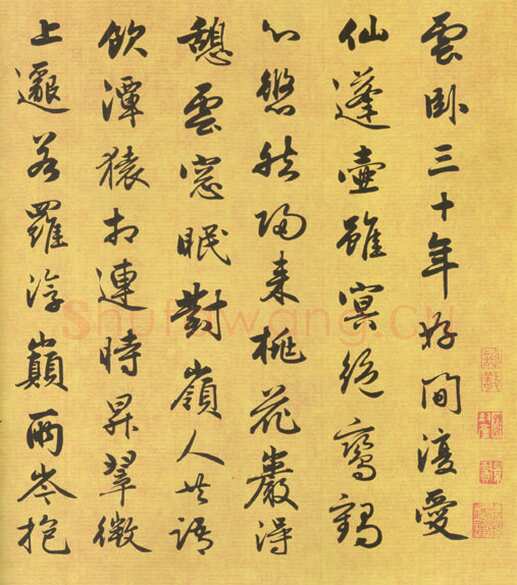 雲臥三十年好閒復愛
仙蓬壺雖冥絕鸞鶴
心悠然歸來桃花巖得
憩雲窓眠對嶺人共語
飲潭猿相連時昇翠微
上邈若羅浮巔兩岑抱
Shufawang.cn